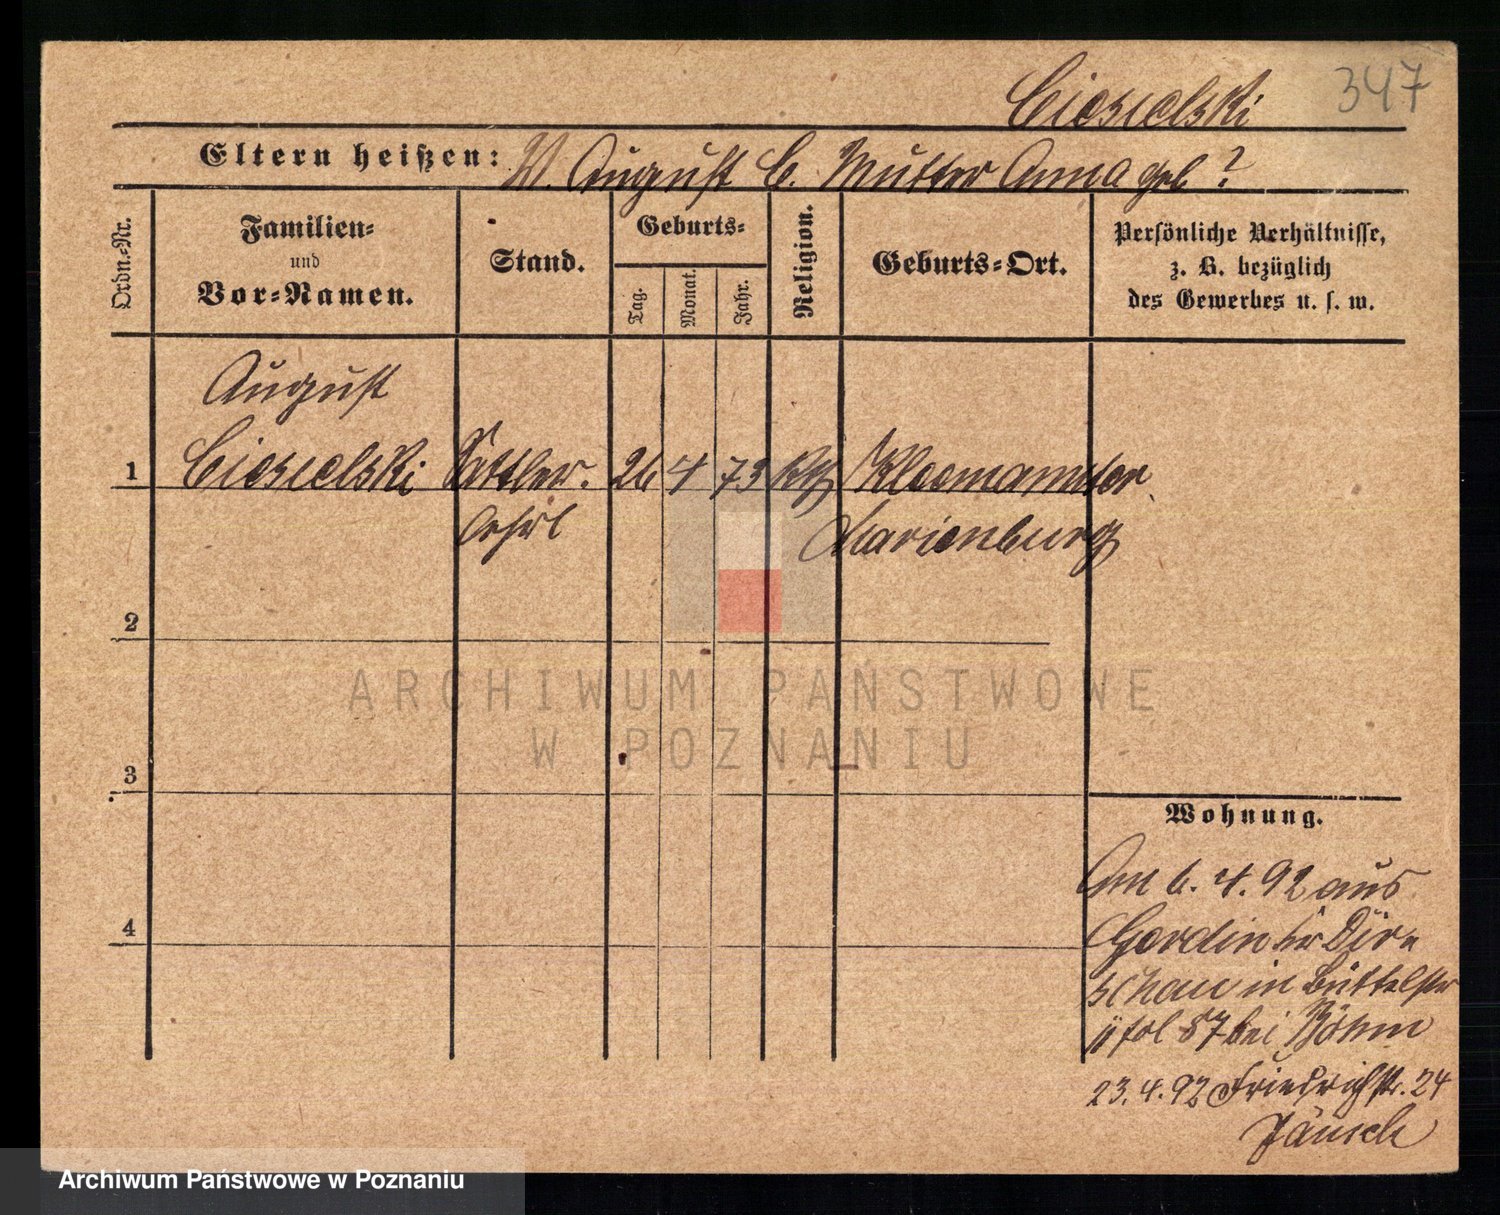 347
Ciesielski
Eltern heißen: V. August C. Mutter Anna geb ?
Ordn.-Nr.
Familien-
und
Vor-Namen.
Stand.
Geburts-
Tag.
Monat.
Jahr.
Religion.
Geburts-Ort.
Persönliche Verhältnisse,
z. B. bezüglich
des Gewerbes u. s. w.
August
1 Ciesielski Sattler. 26 4 73 kth
Lehrl Marienburg
2
3
4
Wohnung.
Am 6. 4. 92 aus
Gordin kr Dir
schau in Büttelstr
fol 57 bei Böhm
23. 4. 92 Friedrichstr. 24
Jänsch
ARCHIWUM PAŃSTWOWE
W POZNANIU
Archiwum Państwowe w Poznaniu